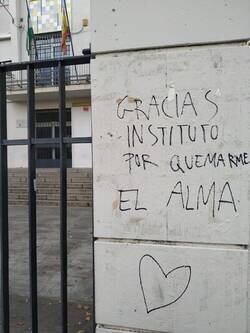 GRACIAS
INSTITUTO
POR QUEMARME
EL ALMA